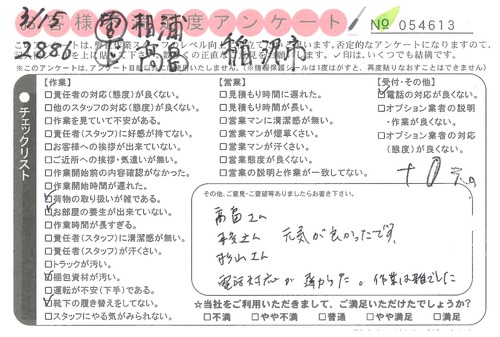 31/5 営 相浦
お客様 度アンケート № 054613
2886 高畠 稲沢市
※このアンケートは、アンケート目的以外には使用いたしません。(※情報保護シールは1度はがすと、再度貼りなおすことはできません)
チェックリスト
【作業】
□責任者の対応(態度)が良くない。
□他のスタッフの対応(態度)が良くない。
□作業を見ていて不安がある。
□責任者(スタッフ)に好感が持てない。
□お客様への挨拶が出来ていない。
□ご近所への挨拶・気遣いが無い。
□作業開始前の内容確認がなかった。
□作業開始時間が遅れた。
□荷物の取り扱いが雑である。
□お部屋の養生が出来ていない。
□作業時間が長すぎる。
□責任者(スタッフ)に清潔感が無い。
□責任者(スタッフ)が汗くさい。
□トラックが汚い。
□梱包資材が汚い。
□運転が不安(下手)である。
□靴下の履き替えをしてない。
□スタッフにやる気がみられない。
【営業】
□見積もり時間に遅れた。
□見積もり時間が長い。
□営業マンに清潔感が無い。
□営業マンが煙草くさい。
□営業マンが汗くさい。
□営業態度が良くない。
□営業の説明と作業が一致してない。
【受付・その他】
□電話の対応が良くない。
□オプション業者の説明・作業が良くない。
□オプション業者の対応(態度)が良くない。
その他、ご意見・ご要望等ありましたらお書き下さい。
高畠さん
元気が良かったです
杉山さん
電話対応が 悪かった。作業は雑でした
☆当社をご利用いただきまして、ご満足いただけたでしょうか?
□不満 □やや不満 □普通 □やや満足 □満足